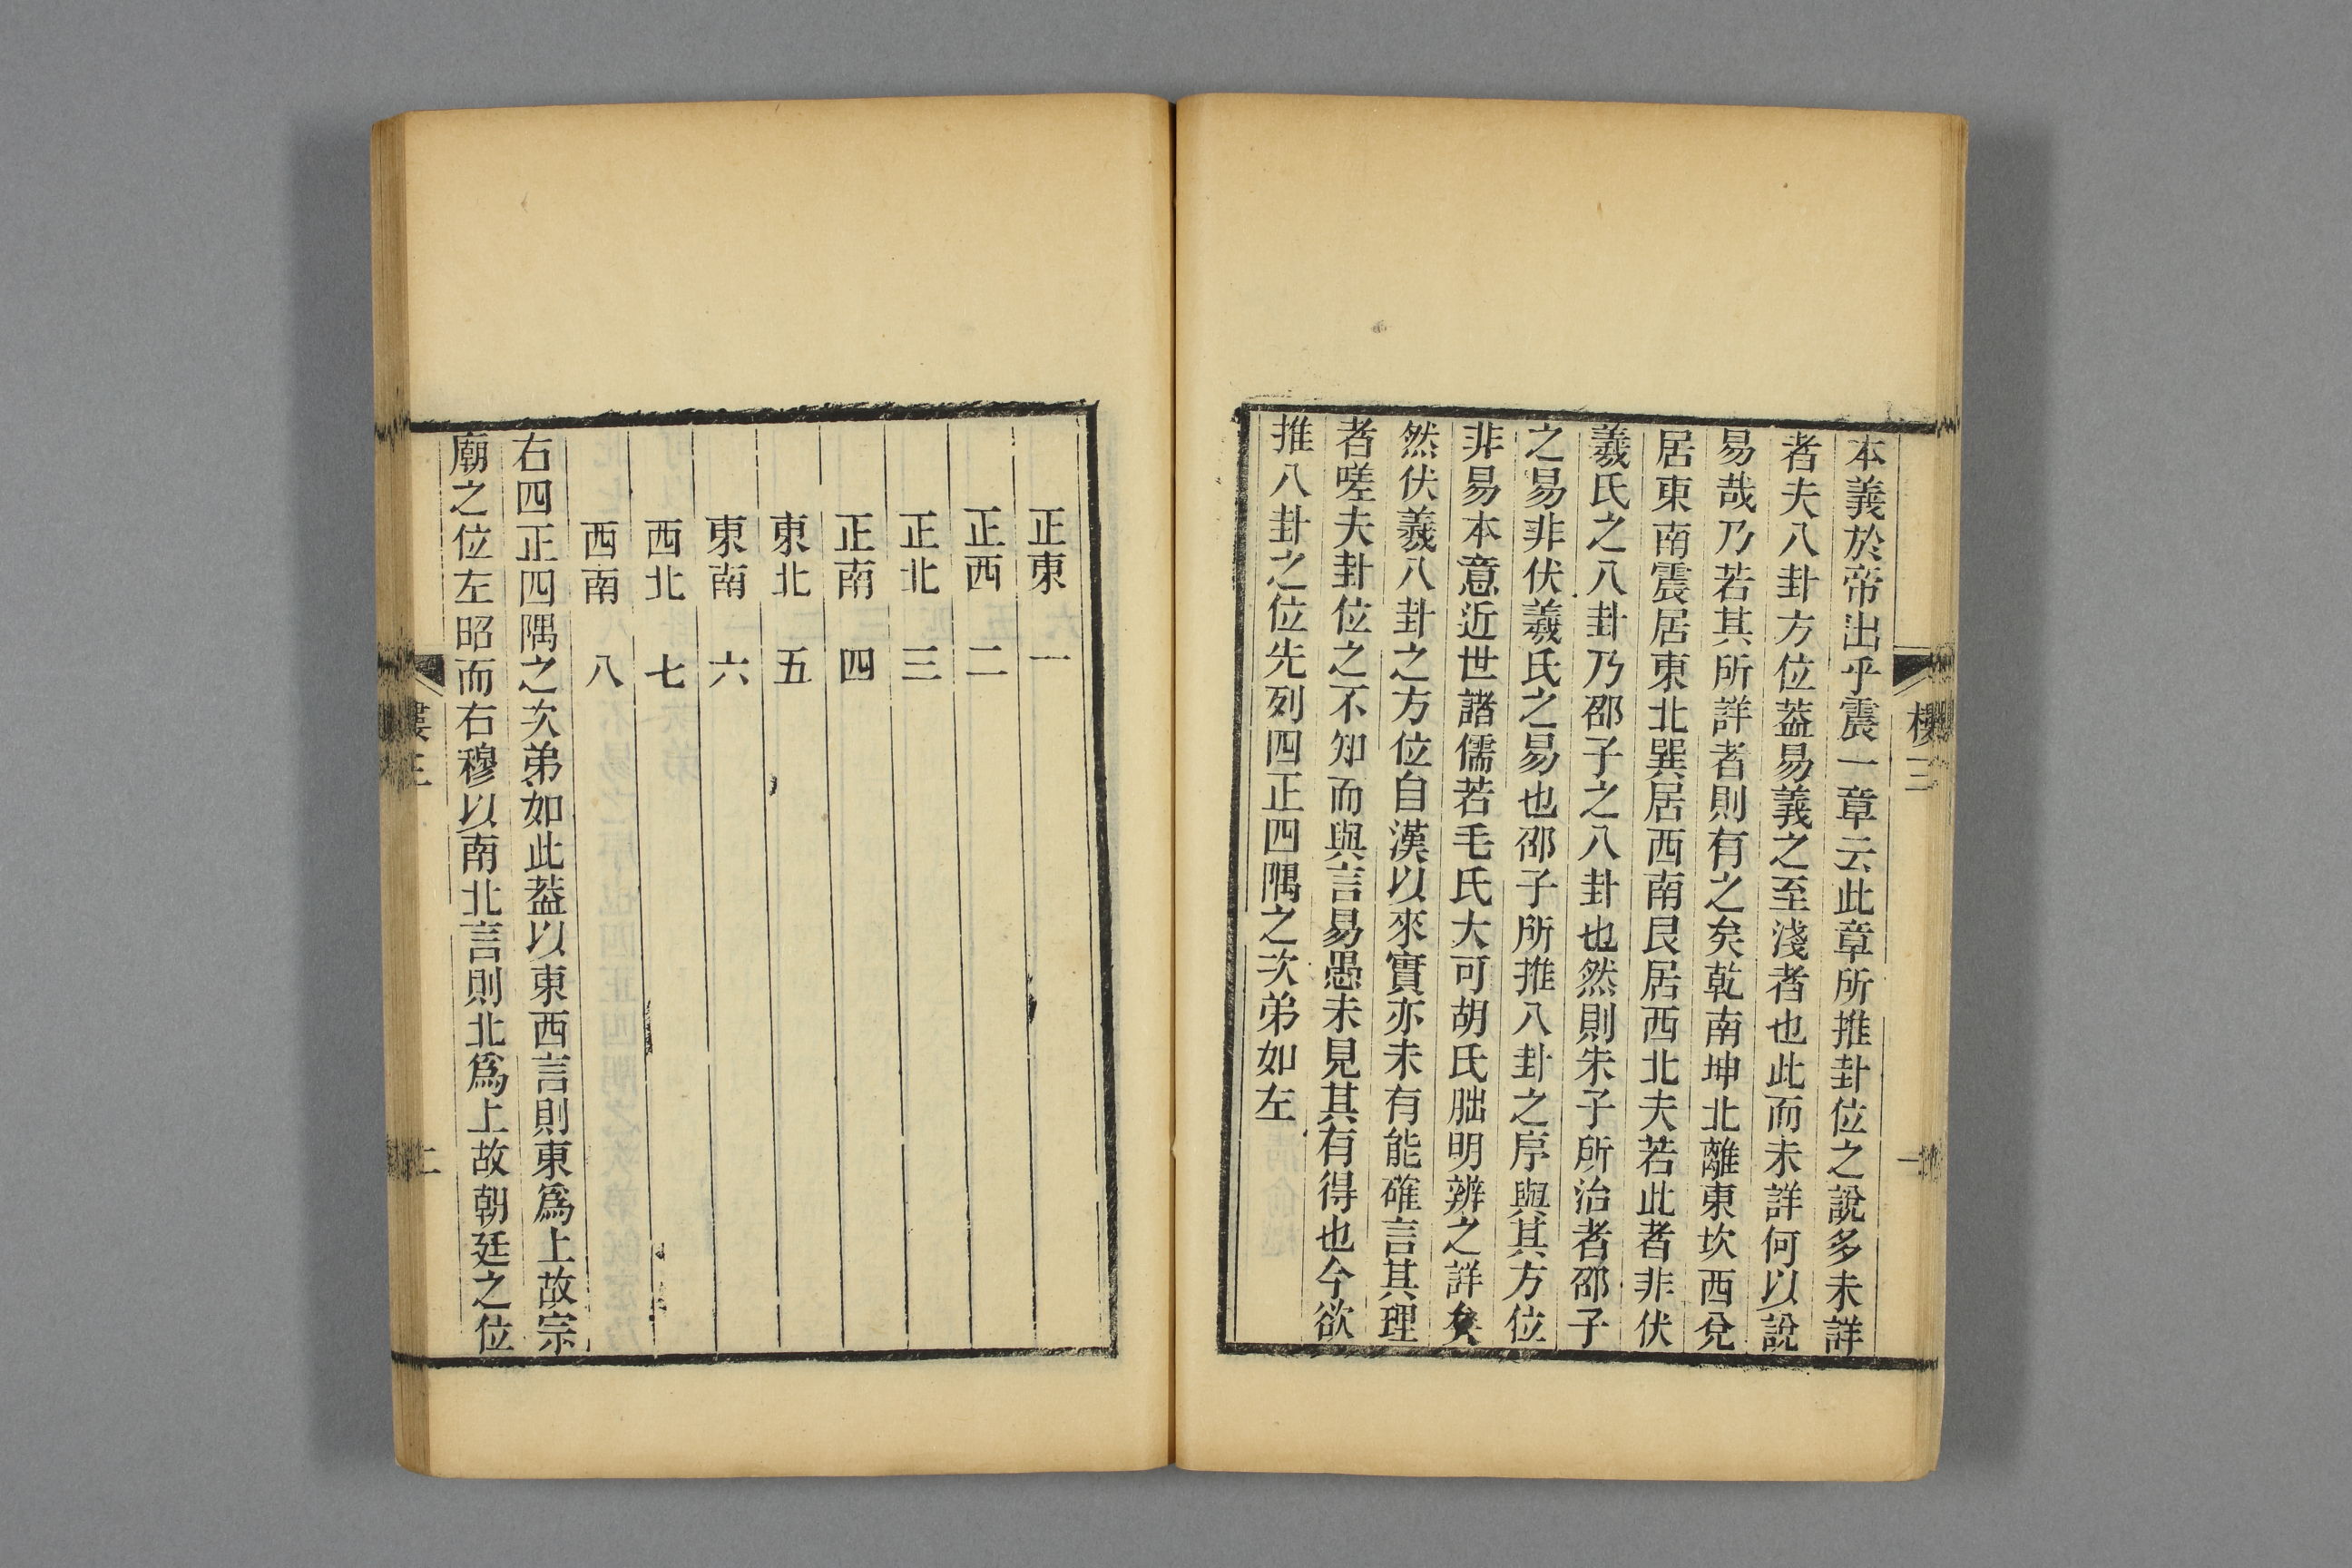 本義於帝出乎震一章云此章所推卦位之說多未詳
者夫八卦方位葢易義之至淺者也此而未詳何以說
易哉乃若其所詳者則有之矣乾南坤北離東坎西兌
居東南震居東北巽居西南艮居西北夫若此者非伏
羲氏之八卦乃邵子之八卦也然則朱子所治者邵子
之易非伏羲氏之易也邵子所推八卦之序與其方位
非易本意近世諸儒若毛氏大可胡氏朏明辨之詳矣
然伏羲八卦之方位自漢以來實亦未有能確言其理
者嗟夫卦位之不知而與言易愚未見其有得也今欲
推八卦之位先列四正四隅之次弟如左
正東 一
正西 二
正北 三
正南 四
東北 五
東南 六
西北 七
西南 八
右四正四隅之次弟如此葢以東西言則東爲上故宗
廟之位左昭而右穆以南北言則北爲上故朝廷之位